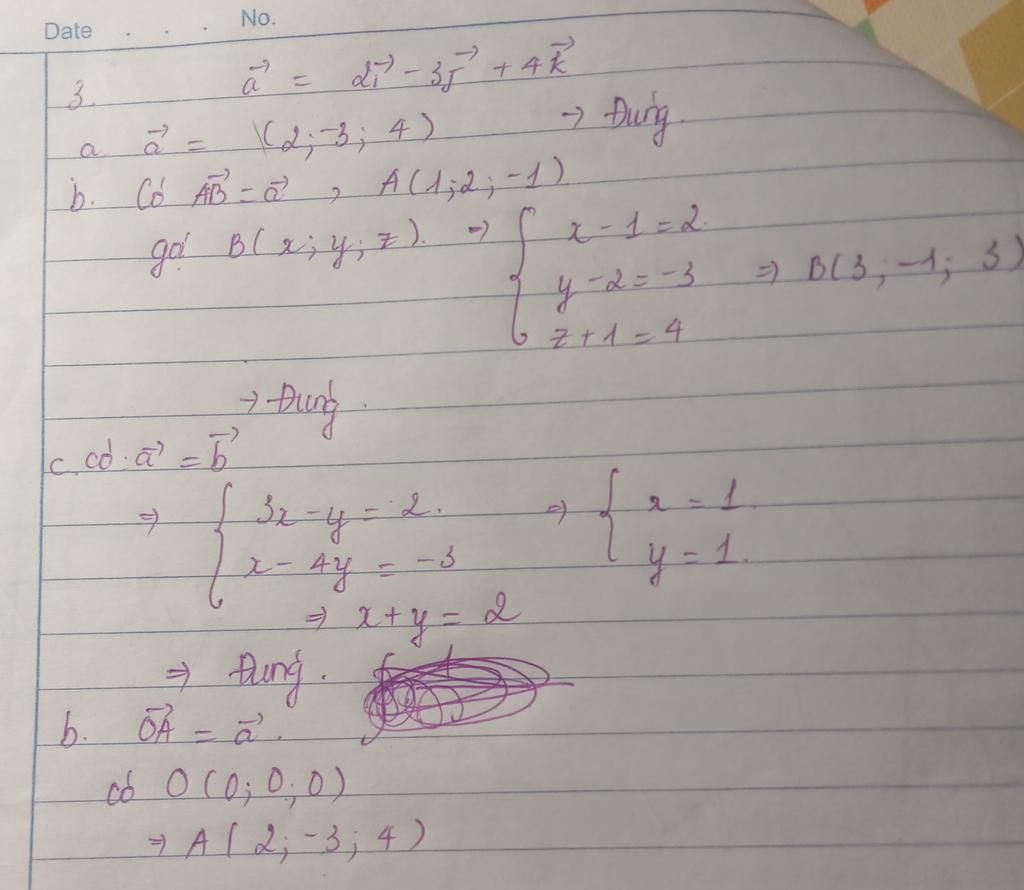 Date . . . No.
3. a⃗ = 2i⃗ - 3j⃗ + 4k⃗
a. a⃗ = (2; -3; 4) → Đúng.
b. Có AB⃗ = a⃗ , A(1; 2; -1)
gọi B(x; y; z). ⇒ { x - 1 = 2.
y - 2 = -3 ⇒ B(3; -1; 3)
z + 1 = 4
→ Đúng.
c. có: a⃗ = b⃗
⇒ { 3x - y = 2. ⇒ { x = 1.
x - 4y = -3 y = 1.
⇒ x + y = 2
⇒ Đúng.
b. OA⃗ = a⃗.
có O(0; 0; 0)
⇒ A(2; -3; 4)